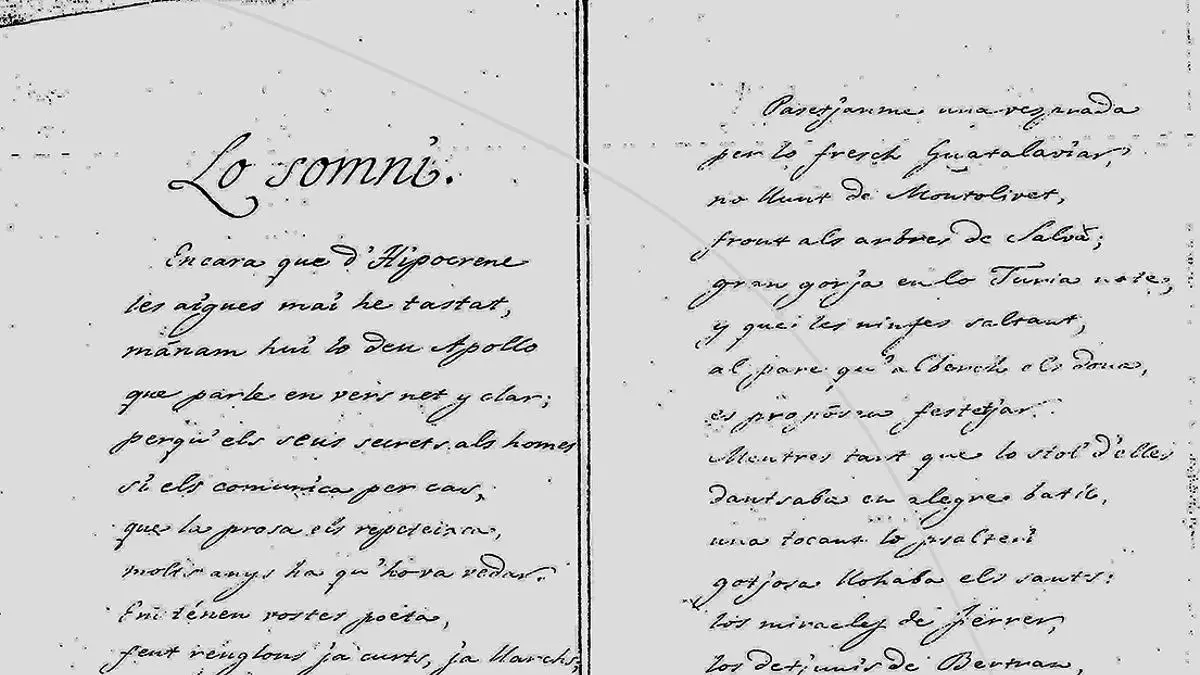 Lo somni.
Encara que d'Hipocrene
les aigues mai he tastat,
mánam hui lo deu Apollo
que parle en vers net y clar;
perqu' els seus secrets als homes
si els comunica per cas,
que la prosa els repeteixca,
molts anys ha qu' ho va vedar.
Em ténen vostes poéta,
fent renglons ja curts, ja llarchs;
Pasetjanme una vesprada
per lo fresch Guatalaviar,
no llunt de Montolivet,
front als arbres de Salvá;
gran gorja en lo Turia note,
y que les ninfes saltant,
al pare qu' alberch els dona,
es propósen festetjar.
Mentres tant que lo stol d'elles
dantsaba en alegre batil,
una tocant lo psalteri
gotjosa llohaba els sants:
los miracles de Ferrer,
los detjunis de Bertran,